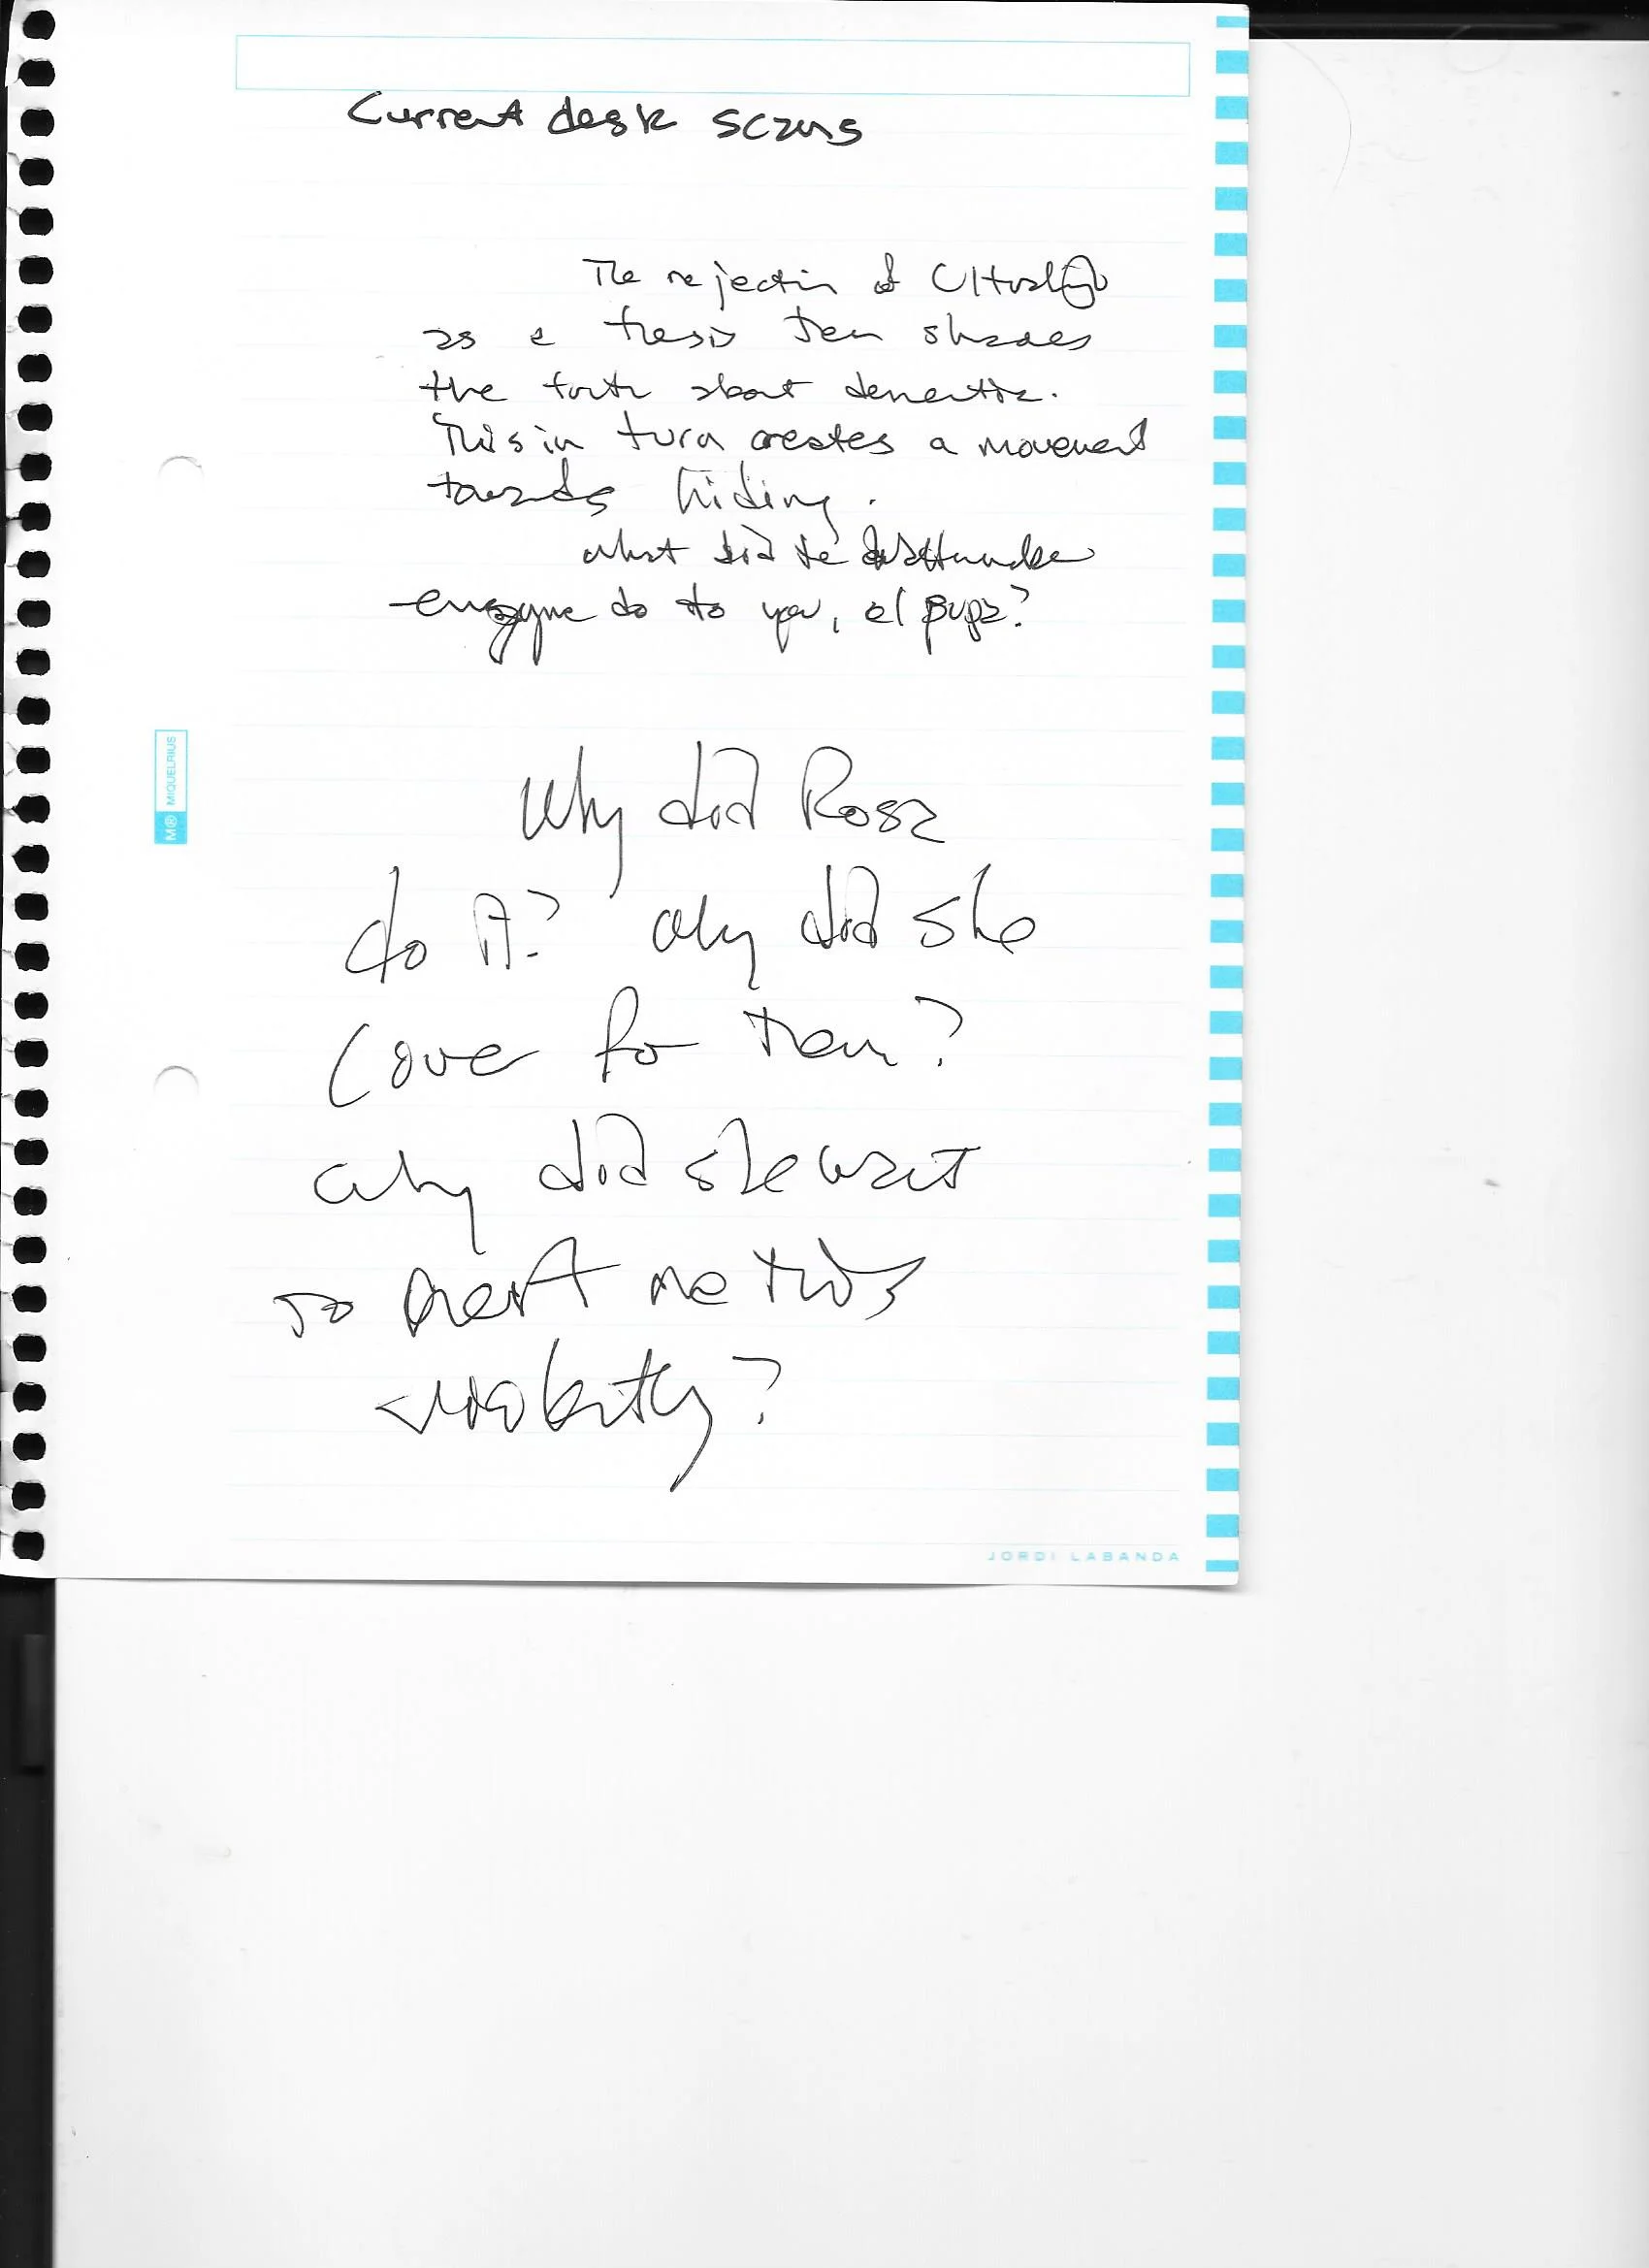 Current desk scans
The rejection of
as a thesis then shades
the truth about dementia.
This in turn creates a movement
towards hiding.
what did the
enzyme do to you, el pupa?
MIQUELRIUS
Why did Rosa
do it? Why did she
cover for them?
Why did she want
so me this
JORDI LABANDA